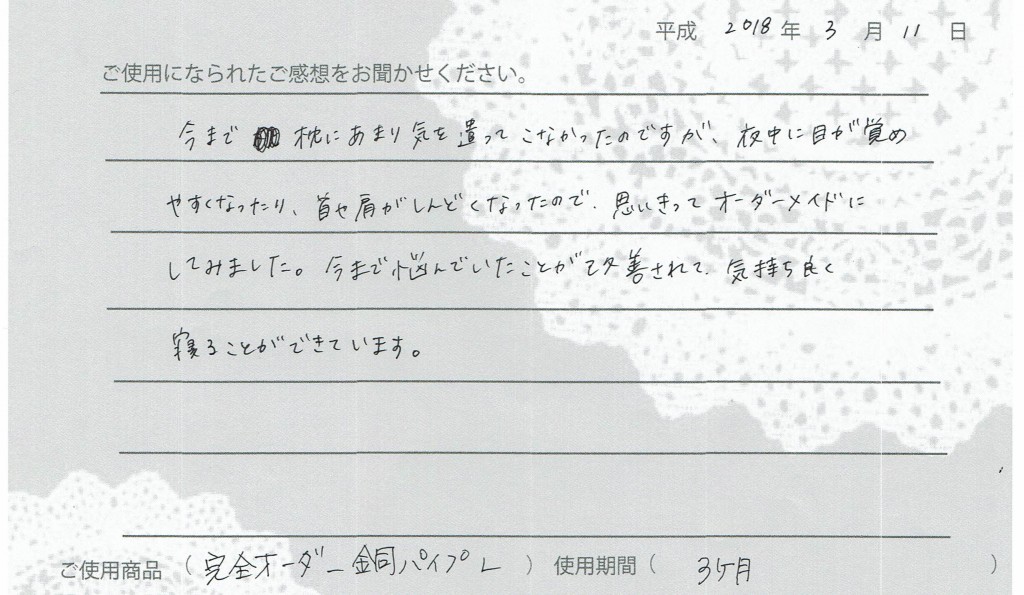 平成 2018 年 3 月 11 日
ご使用になられたご感想をお聞かせください。
今まで 枕にあまり気を遣ってこなかったのですが、夜中に目が覚め
やすくなったり、首や肩がしんどくなったので、思いきってオーダーメイドに
してみました。今まで悩んでいたことが改善されて、気持ち良く
寝ることができています。
ご使用商品 ( 完全オーダー 銅パイプ L ) 使用期間 ( 3ケ月 )